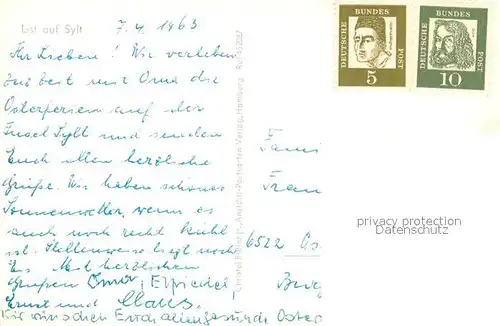 List auf Sylt
7.4.1963
Ihr Lieben! Wir verleben
zur Zeit mit Oma die
Osterferien auf der
Insel Sylt und senden
Euch allen herzliche
Grüße. Wir haben schönes
Sonnenwetter, wenn es
auch noch recht kühl
ist. Stellenweise liegt noch
Eis. Mit herzlichen
Grüßen Oma,
Ernst und Claus.
Wir wünschen Euch allen gesunde Oster
DEUTSCHE
BUNDES
POST
5
DEUTSCHE
BUNDES
POST
10
Fami
Frau
6522 Os
Burg
privacy protection
Datenschutz